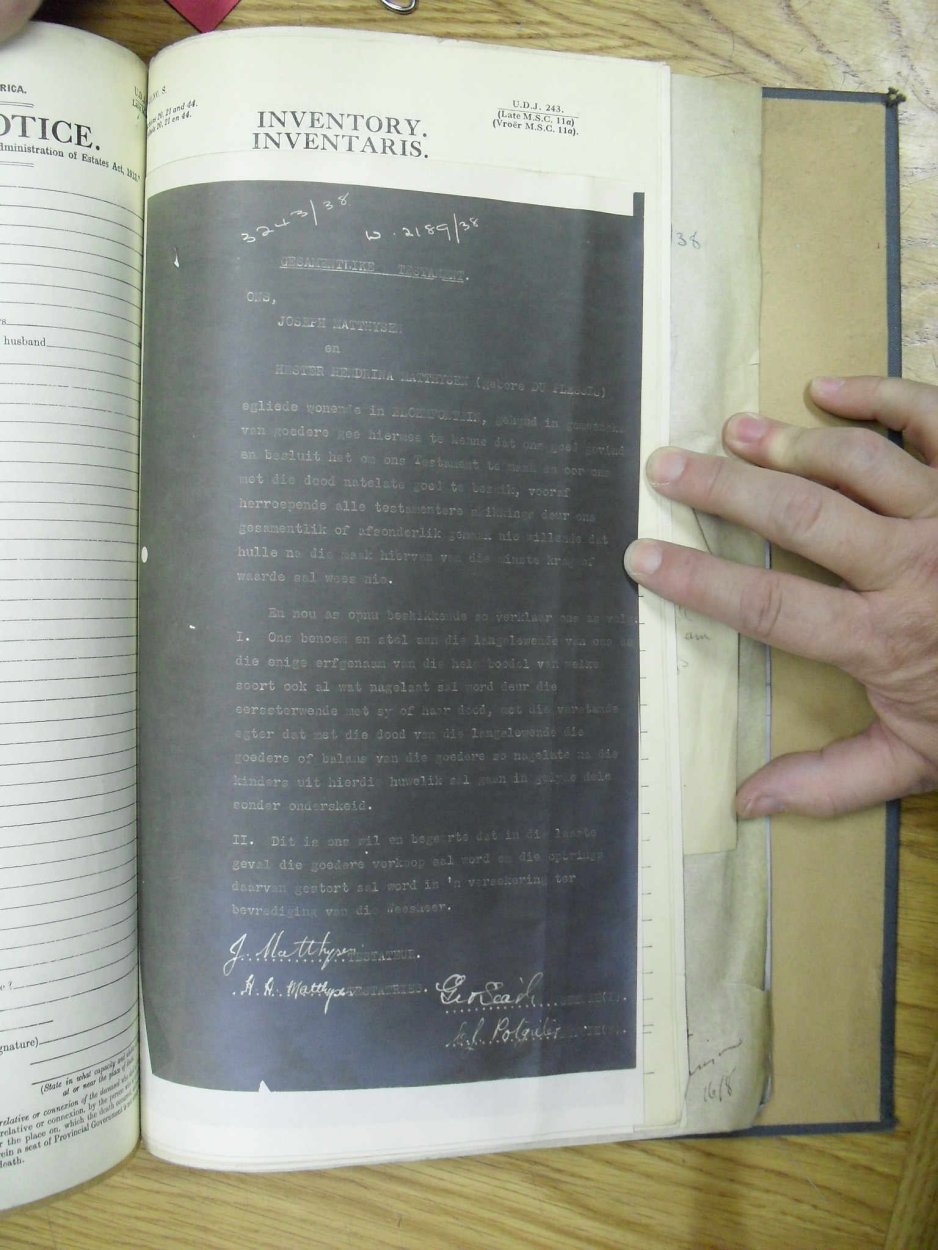 RICA.
OTICE.
dministration of Estates Act, 1913."
husband
gnature)
(State in what capacity
at or near the place of
relative or connexion of the deceased
relative or connexion, by the person
r the place on, which the death
rein a seat of Provincial Government
death.
20, 21 and 44.
20, 21 en 44.
INVENTORY.
INVENTARIS.
U.D.J. 243.
(Late M.S.C. 11a)
(Vroër M.S.C. 11a).
3243/38
W. 2189/38
GESAMENTLIKE TESTAMENT.
ONS,
JOSEPH MATTHYSEN
en
HESTER HENDRINA MATTHYSEN (gebore DU PLESSIS)
egliede wonende in BLOEMFONTEIN, getroud in gemeenskap
van goedere gee hiermee te kenne dat ons goed gevind
en besluit het om ons Testament te maak en oor ons
met die dood natelate goed te beskik, vooraf
herroepende alle testamentere skikkings deur ons
gesamentlik of afsonderlik gemaak nie willende dat
hulle na die maak hiervan van die minste krag of
waarde sal wees nie.
En nou as opnu beskikkende so verklaar ons as volg
I. Ons benoem en stel aan die langslewende van ons as
die enige erfgenaam van die hele boedel van welke
soort ook al wat nagelaat sal word deur die
eerssterwende met sy of haar dood, met die verstande
egter dat met die dood van die langslewende die
goedere of balans van die goedere so nagelate na die
kinders uit hierdie huwelik sal gaan in gelyke dele
sonder onderskeid.
II. Dit is ons wil en begeerte dat in die laaste
geval die goedere verkoop sal word en die opbrings
daarvan gestort sal word in 'n versekering ter
bevrediging van die Weesheer.
J. Matthysen TESTATEUR.
H. H. Matthysen TESTATRISE.
GETUIE(1).
GETUIE(2).
/38
am
16/8